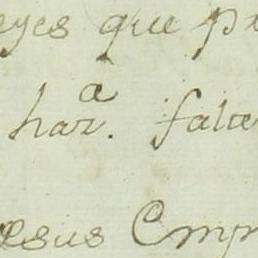 eyes que p
har.ª falta
esus Emp